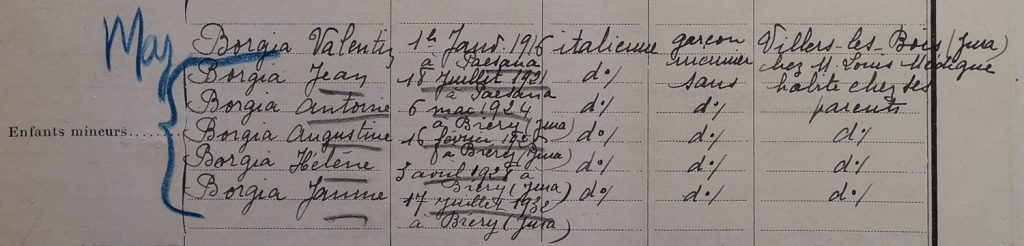 May
Borgia Valentin 1er Janv. 1916 italienne garçon Villers-les-Bois (Jura)
à Paesana meunier chez M. Louis
Borgia Jean 18 Juillet 1921 d°/ sans habite chez ses
à Paesana parents
Borgia Antoine 6 mai 1924 d°/ d°/
à Bréry (Jura)
Enfants mineurs..... Borgia Augustine 16 février 1926 d°/ d°/ d°/
à Bréry (Jura)
Borgia Hélène 3 avril 1928 à d°/ d°/ d°/
Bréry (Jura)
Borgia Janine 17 Juillet 1932 d°/ d°/ d°/
à Bréry (Jura)